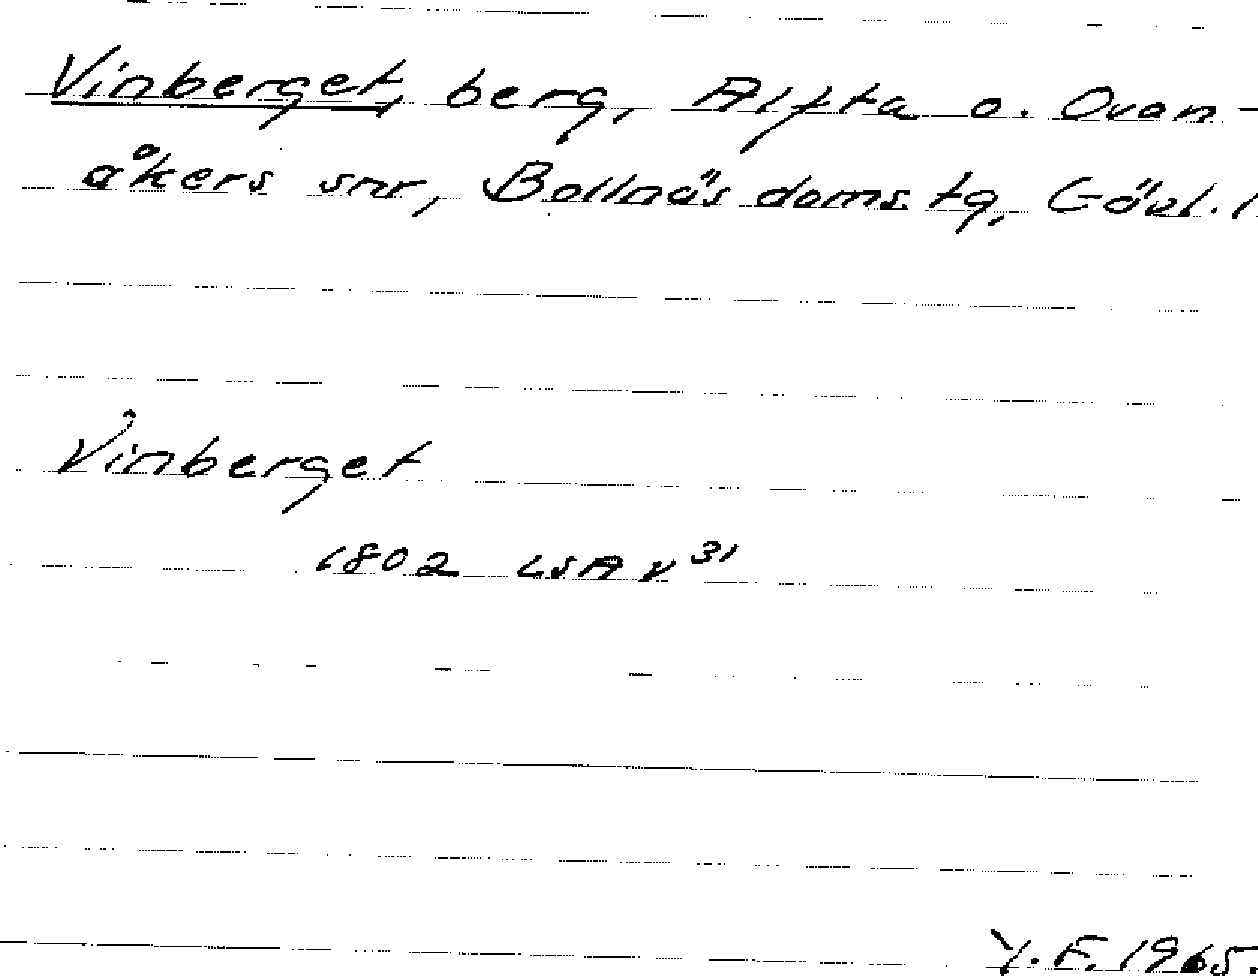 Vinberget, berg, Alfta o. Ovan-
åkers snr, Bollnäs doms. tg, Gävl. l.
Vinberget
1802 LSA v³¹
Y. E. 1965.